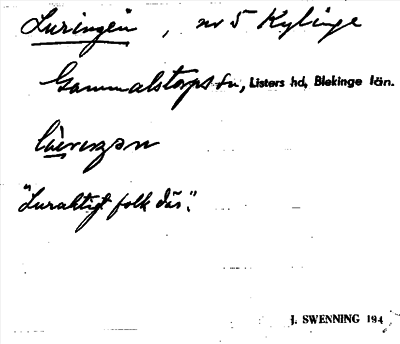 Luringen, nr 5 Kylinge
Gammalstorps sn, Listers hd, Blekinge län.
"Luraktigt folk där".
J. SWENNING 194